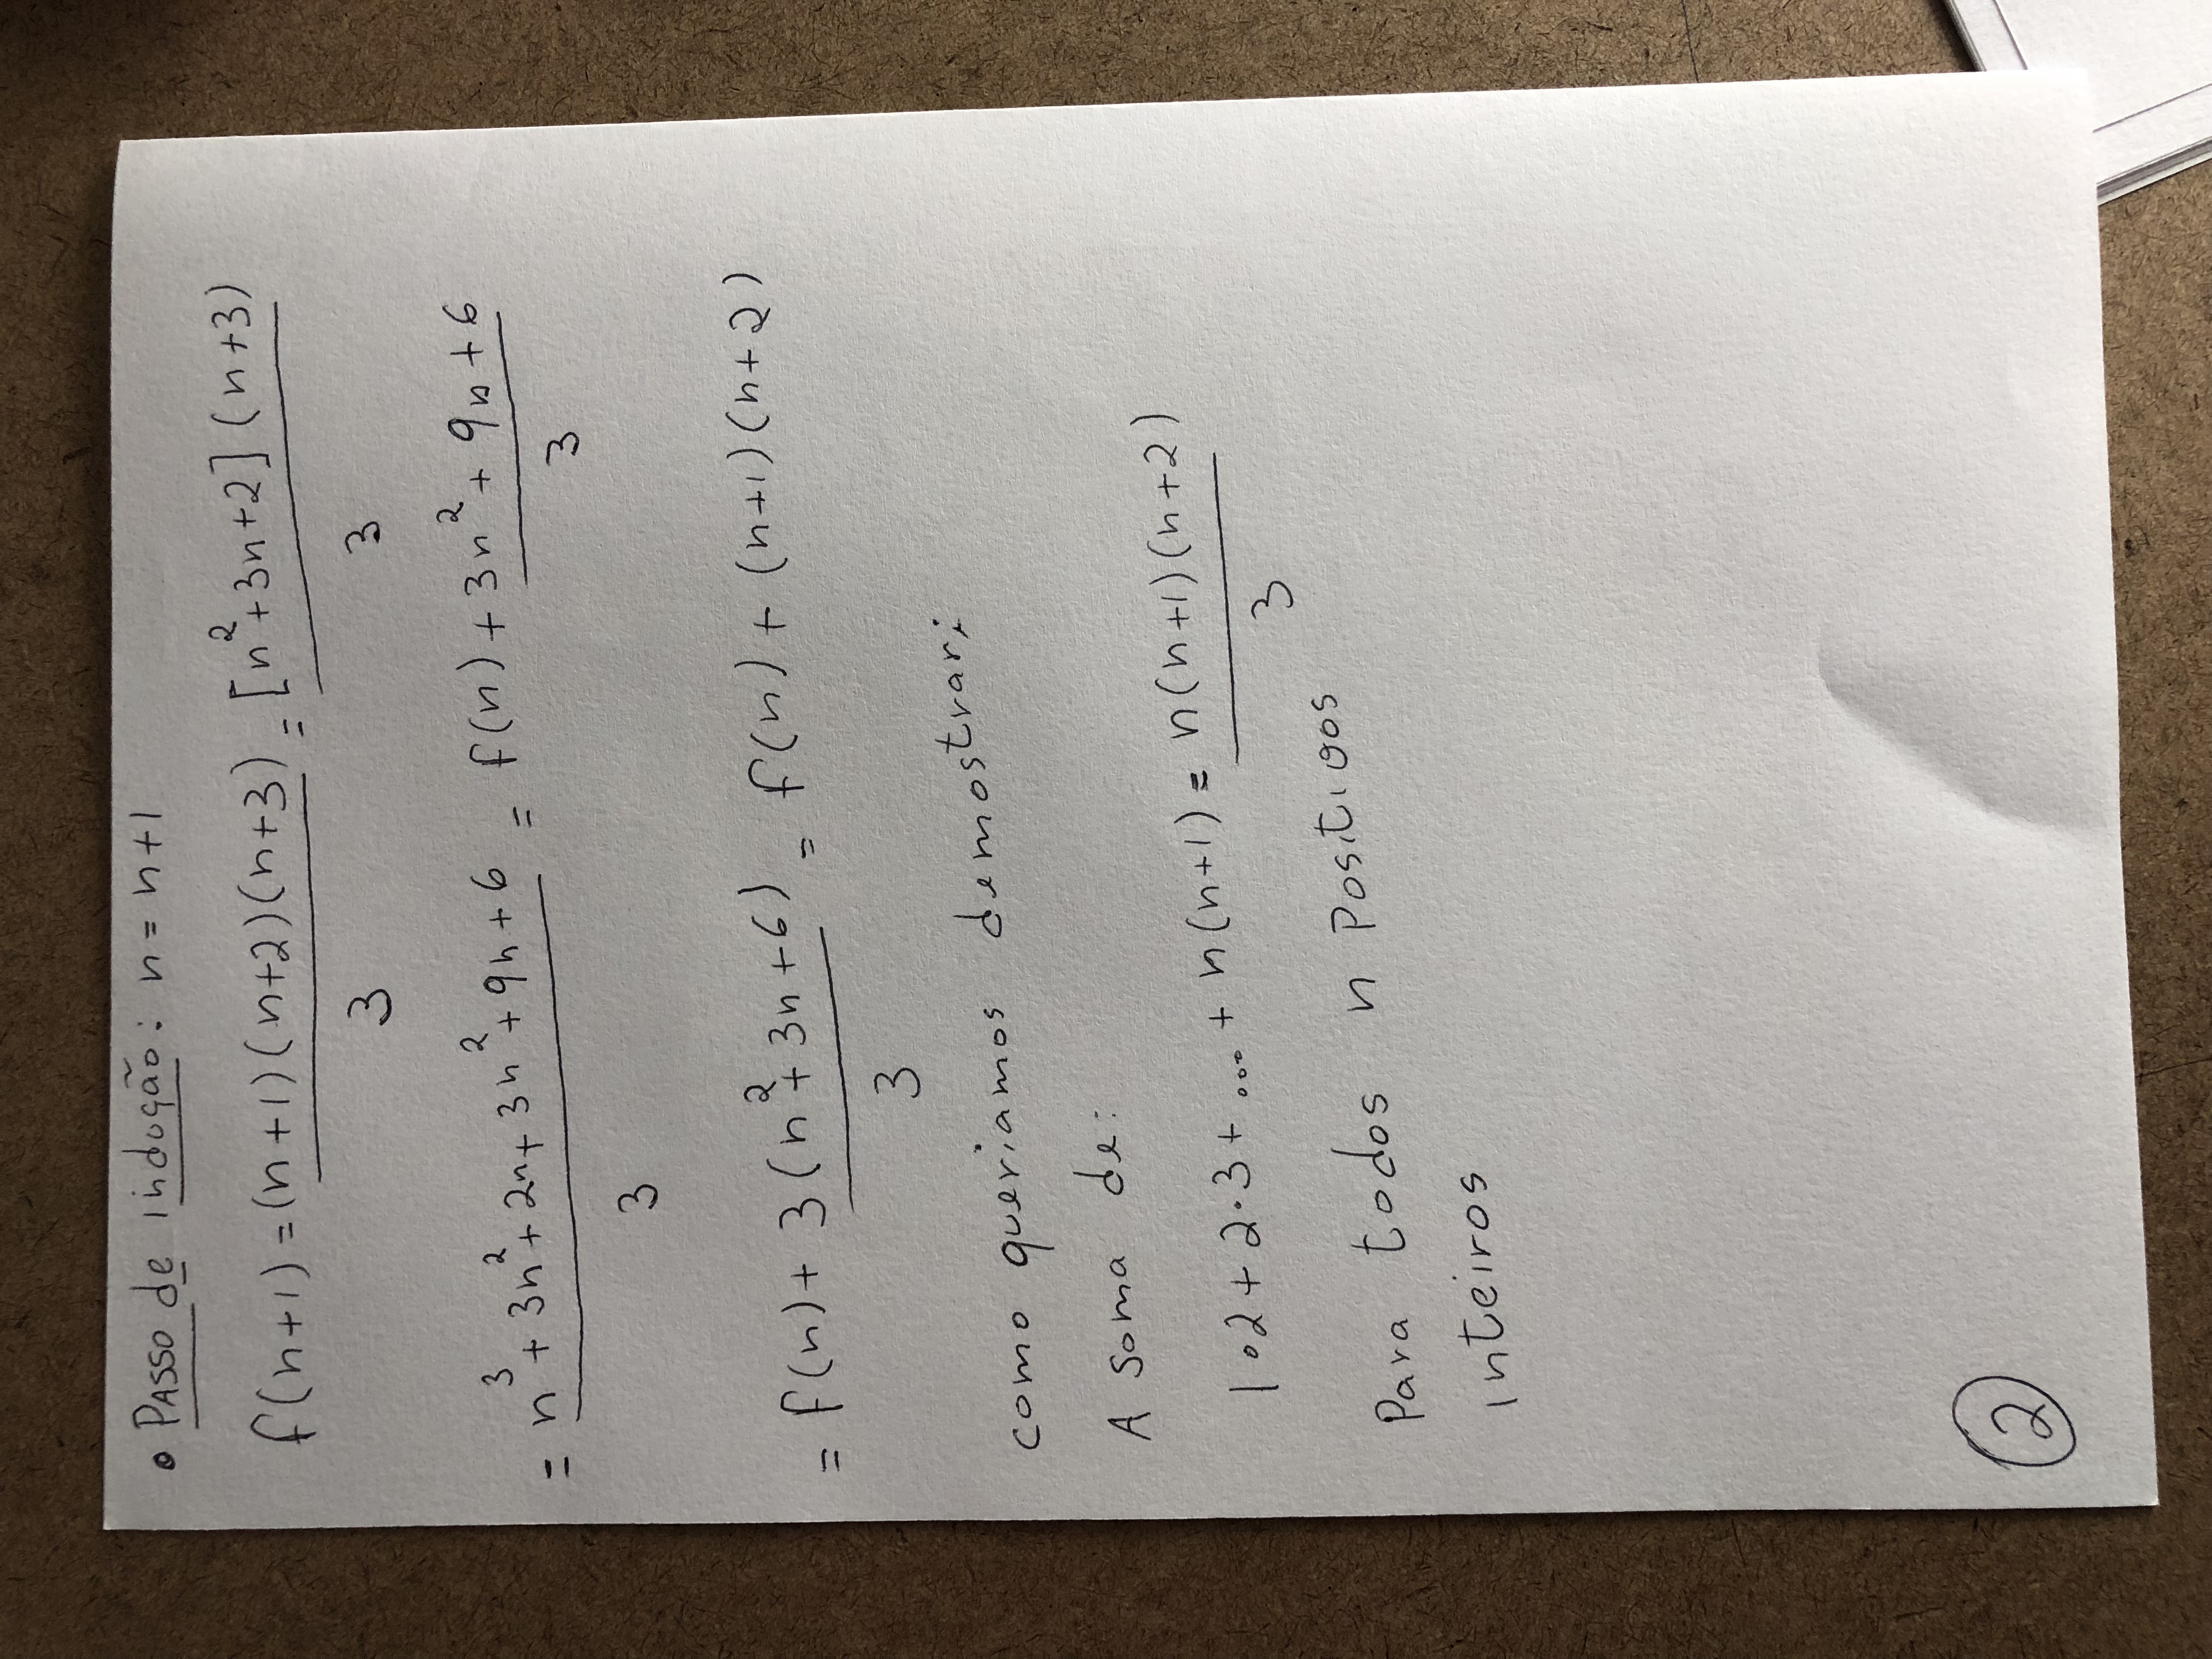 • PASSO de indução: n = n+1
f(n+1) = (n+1)(n+2)(n+3)/3 = [n²+3n+2](n+3)/3
= n³+3n²+2n+3n²+9n+6/3 = f(n) + 3n²+9n+6/3
= f(n) + 3(n²+3n+6)/3 = f(n) + (n+1)(n+2)
como queriamos demostrar;
A soma de:
1•2+2•3+...+n(n+1) = n(n+1)(n+2)/3
Para todos n Positivos
inteiros
2